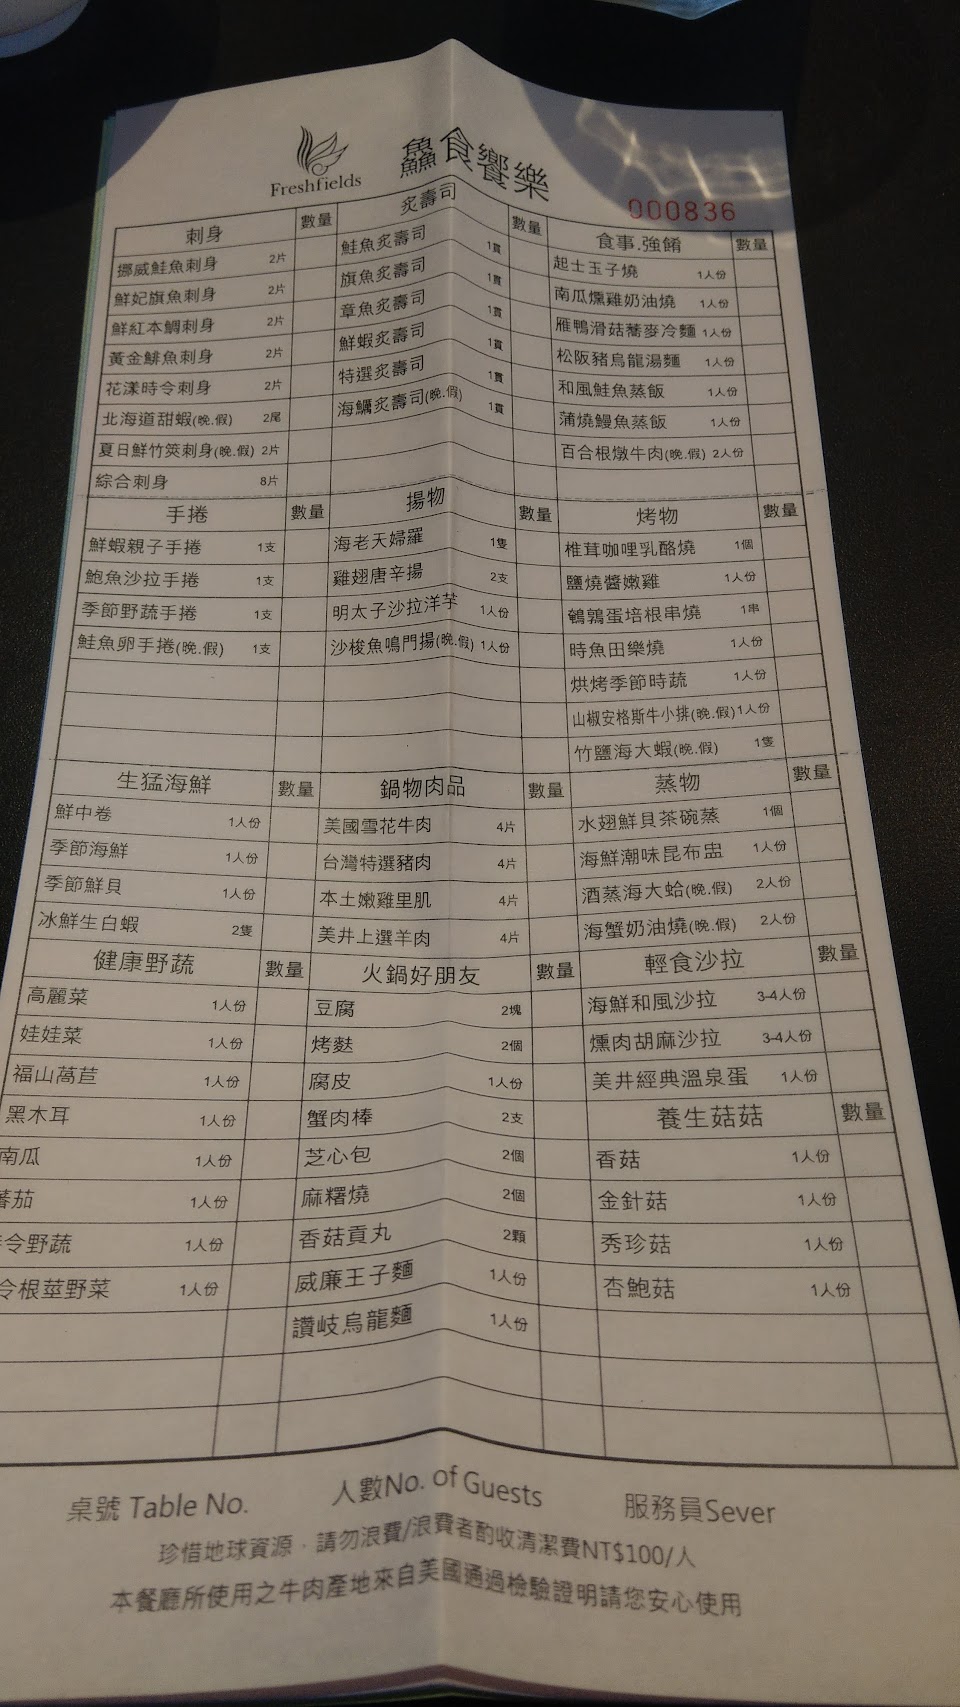 Freshfields
鱻食饗樂
000836
刺身 數量
挪威鮭魚刺身 2片
鮮妃旗魚刺身 2片
鮮紅本鯛刺身 2片
黃金鯡魚刺身 2片
花漾時令刺身 2片
北海道甜蝦(晚.假) 2尾
夏日鮮竹筴刺身(晚.假) 2片
綜合刺身 8片
炙壽司 數量
鮭魚炙壽司 1貫
旗魚炙壽司 1貫
章魚炙壽司 1貫
鮮蝦炙壽司 1貫
特選炙壽司 1貫
海鱺炙壽司(晚.假) 1貫
食事.強餚 數量
起士玉子燒 1人份
南瓜燻雞奶油燒 1人份
雁鴨滑菇蕎麥冷麵 1人份
松阪豬烏龍湯麵 1人份
和風鮭魚蒸飯 1人份
蒲燒鰻魚蒸飯 1人份
百合根燉牛肉(晚.假) 2人份
手捲 數量
鮮蝦親子手捲 1支
鮑魚沙拉手捲 1支
季節野蔬手捲 1支
鮭魚卵手捲(晚.假) 1支
揚物 數量
海老天婦羅 1隻
雞翅唐辛揚 2支
明太子沙拉洋芋 1人份
沙梭魚鳴門揚(晚.假) 1人份
烤物 數量
椎茸咖哩乳酪燒 1個
鹽燒醬嫩雞 1人份
鵪鶉蛋培根串燒 1串
時魚田樂燒 1人份
烘烤季節時蔬 1人份
山椒安格斯牛小排(晚.假) 1人份
竹鹽海大蝦(晚.假) 1隻
生猛海鮮 數量
鮮中卷 1人份
季節海鮮 1人份
季節鮮貝 1人份
冰鮮生白蝦 2隻
鍋物肉品 數量
美國雪花牛肉 4片
台灣特選豬肉 4片
本土嫩雞里肌 4片
美井上選羊肉 4片
蒸物 數量
水翅鮮貝茶碗蒸 1個
海鮮潮味昆布盅 1人份
酒蒸海大蛤(晚.假) 2人份
海蟹奶油燒(晚.假) 2人份
健康野蔬 數量
高麗菜 1人份
娃娃菜 1人份
福山萵苣 1人份
黑木耳 1人份
南瓜 1人份
蕃茄 1人份
令野蔬 1人份
令根莖野菜 1人份
火鍋好朋友 數量
豆腐 2塊
烤麩 2個
腐皮 1人份
蟹肉棒 2支
芝心包 2個
麻糬燒 2個
香菇貢丸 2顆
威廉王子麵 1人份
讚岐烏龍麵 1人份
輕食沙拉 數量
海鮮和風沙拉 3-4人份
燻肉胡麻沙拉 3-4人份
美井經典溫泉蛋 1人份
養生菇菇 數量
香菇 1人份
金針菇 1人份
秀珍菇 1人份
杏鮑菇 1人份
桌號 Table No. 人數No. of Guests 服務員Sever
珍惜地球資源，請勿浪費/浪費者酌收清潔費NT$100/人
本餐廳所使用之牛肉產地來自美國通過檢驗證明請您安心使用